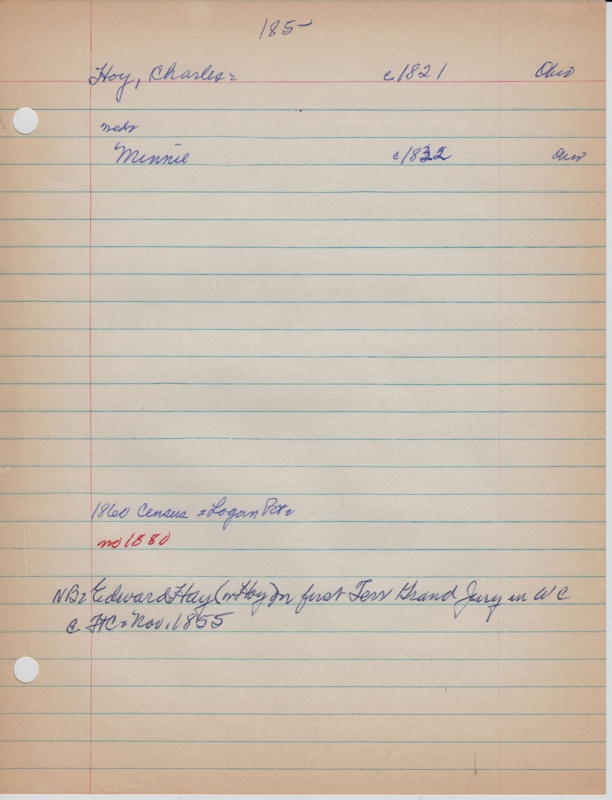 185-
Hoy, Charles= c1821 Ohio
Minnie c1832 Ohio
1860 Census = Logan Pct=
no 1880
NB= Edward Hay (or Hoy) on first Terr Grand Jury in WC
@ FtC= Nov. 1855